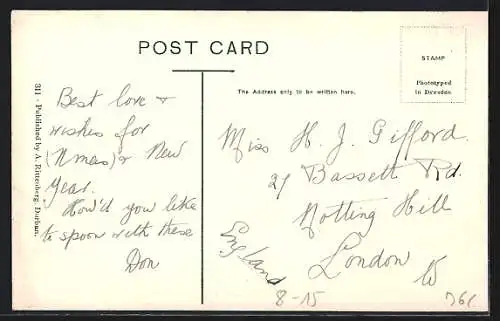 POST CARD
The Address only to be written here.
STAMP
Phototyped
in Dresden
311 - Published by A. Rittenberg, Durban.
Best love +
wishes for
(Xmas) & New
Year.
How'd you like
to spoon with these
Don
Miss H. J. Gifford.
27 Bassett Rd.
Notting Hill
London W
England
8-15